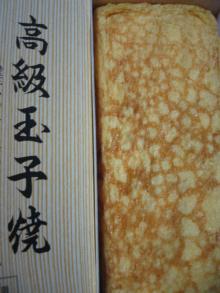 高級玉子焼